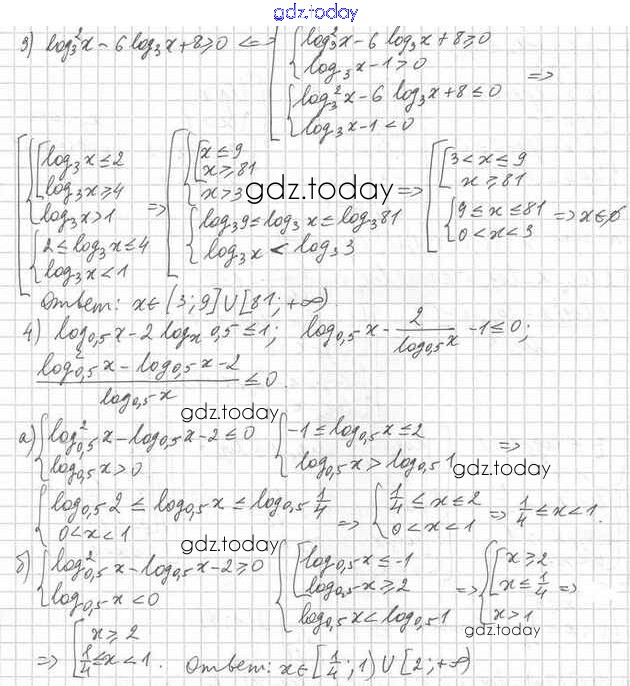 gdz.today
3) log₃²x − 6 log₃x + 8 ⩾ 0 <=> [ { log₃²x − 6 log₃x + 8 ⩾ 0
log₃x − 1 > 0
{ log₃²x − 6 log₃x + 8 ≤ 0 =>
log₃x − 1 < 0
[ { [ log₃x ≤ 2 => [ { [ x ≤ 9 => [ [ 3 < x ≤ 9
log₃x ⩾ 4 x ⩾ 81 x ⩾ 81
log₃x > 1 x > 3 gdz.today
{ 2 ≤ log₃x ≤ 4 { log₃9 ≤ log₃x ≤ log₃81 { 9 ≤ x ≤ 81 => x ∈ ∅
log₃x < 1 log₃x < log₃3 0 < x < 3
Ответ: x ∈ (3; 9] ∪ [81; +∞)
4) log₀,₅x − 2 logₓ0,5 ≤ 1; log₀,₅x − 2/log₀,₅x − 1 ≤ 0;
(log²₀,₅x − log₀,₅x − 2)/log₀,₅x ≤ 0.
gdz.today
а) { log²₀,₅x − log₀,₅x − 2 ≤ 0 { −1 ≤ log₀,₅x ≤ 2 =>
log₀,₅x > 0 log₀,₅x > log₀,₅1 gdz.today
{ log₀,₅2 ≤ log₀,₅x ≤ log₀,₅ 1/4 => { 1/4 ≤ x ≤ 2 => 1/4 ≤ x < 1.
0 < x < 1 0 < x < 1
gdz.today
б) { log²₀,₅x − log₀,₅x − 2 ⩾ 0 { [ log₀,₅x ≤ −1 => { [ x ⩾ 2 =>
log₀,₅x < 0 log₀,₅x ⩾ 2 x ≤ 1/4
log₀,₅x < log₀,₅1 x > 1
gdz.today
=> [ x ⩾ 2
1/4 ≤ x < 1. Ответ: x ∈ [1/4; 1) ∪ [2; +∞)